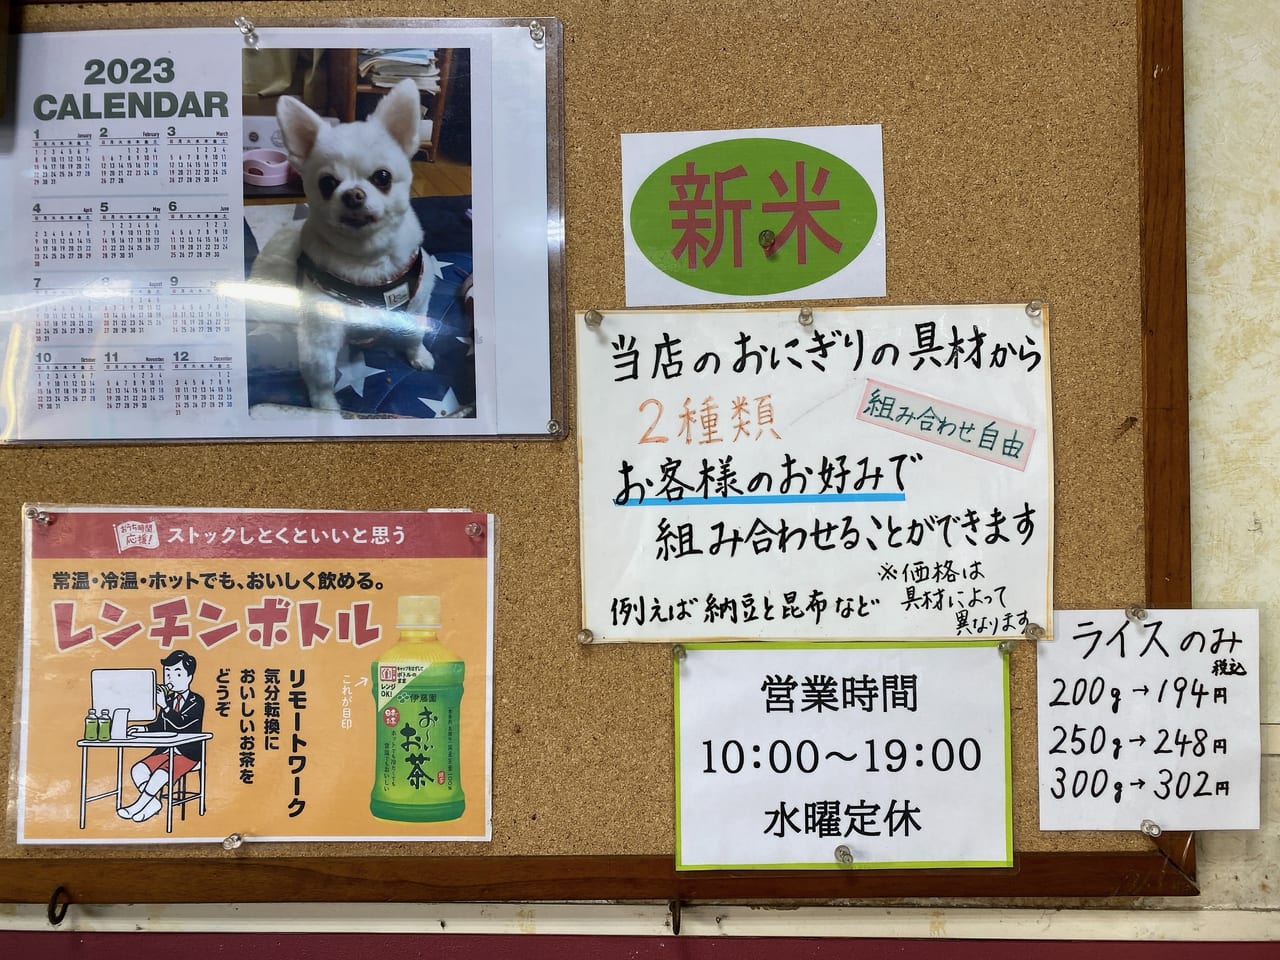 2023
CALENDAR
1 January
2 February
3 March
4 April
5 May
6 June
7
8 August
9
10 October
11 November
12 December
新米
当店のおにぎりの具材から
2種類
組み合わせ自由
お客様のお好みで
組み合わせることができます
例えば納豆と昆布など
※価格は
具材によって
異なります
おうち時間
応援!
ストックしとくといいと思う
常温・冷温・ホットでも、おいしく飲める。
レンチンボトル
リモートワーク
気分転換に
おいしいお茶を
どうぞ
これが目印
レンジ
OK!
伊藤園
お〜いお茶
営業時間
10:00～19:00
水曜定休
ライスのみ
税込
200g→194円
250g→248円
300g→302円